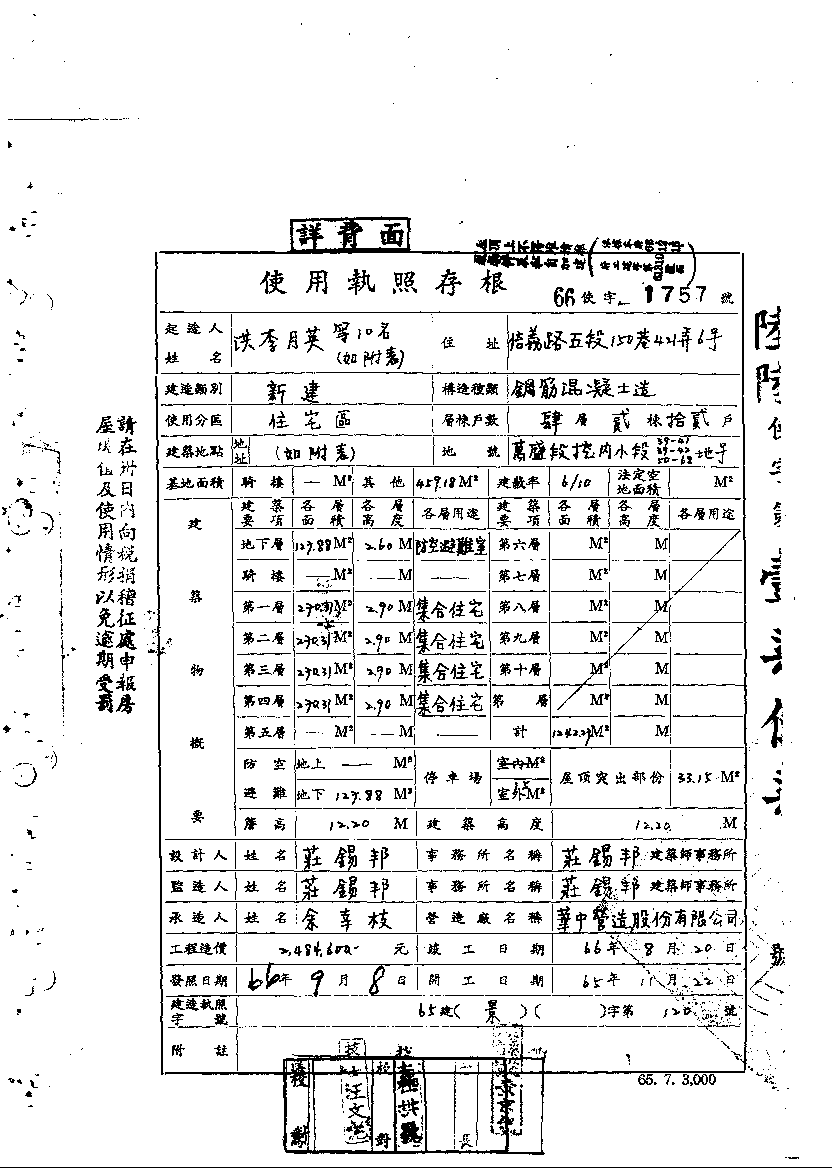 詳背面
使用執照存根
66使字 1757 號
起造人姓名 洪李月英等10名(如附表) 住址 信義路五段150巷421弄6号
建造類別 新建 構造種類 鋼筋混凝土造
使用分區 住宅區 層棟戶數 肆層 貳棟 拾貳戶
建築地點 地址 (如附表) 地號 萬盛段挖內小段 地号
基地面積 騎樓 — M² 其他 459.18M² 建蔽率 6/10 法定空地面積 M²
建築物概要
建築要項 各層面積 各層高度 各層用途 建築要項 各層面積 各層高度 各層用途
地下層 127.88M² 2.60M 防空避難室 第六層 M² M
騎樓 — M² — M —— 第七層 M² M
第一層 270.31M² 2.90M 集合住宅 第八層 M² M
第二層 270.31M² 2.90M 集合住宅 第九層 M² M
第三層 270.31M² 2.90M 集合住宅 第十層 M² M
第四層 270.31M² 2.90M 集合住宅 第 層 M² M
第五層 — M² — M —— 計 M² M
防空避難 地上 — M² 停車場 室內M² 屋頂突出部份 33.15M²
地下 127.88M² 室外M²
簷高 12.20 M 建築高度 12.20 M
設計人 姓名 莊錫邦 事務所名稱 莊錫邦建築師事務所
監造人 姓名 莊錫邦 事務所名稱 莊錫邦建築師事務所
承造人 姓名 余幸枝 營造廠名稱 華中營造股份有限公司
工程造價 2,484,600- 元 竣工日期 66年8月20日
發照日期 66年9月8日 開工日期 65年11月22日
建造執照字號 65建(景)( )字第120號
附註
65. 7. 3,000
校對
汪文
請在 日內向稅捐稽征處申報房
屋 及使用情形以免逾期受罰
陸陸使字第
號